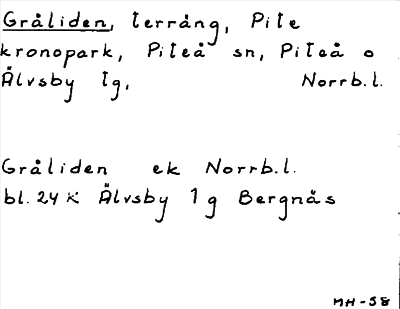 Gråliden, terräng, Pite
kronopark, Piteå sn, Piteå o
Älvsby tg, Norrb.l.
Gråliden ek Norrb.l.
bl. 24 K Älvsby 1 g Bergnäs
MH-58